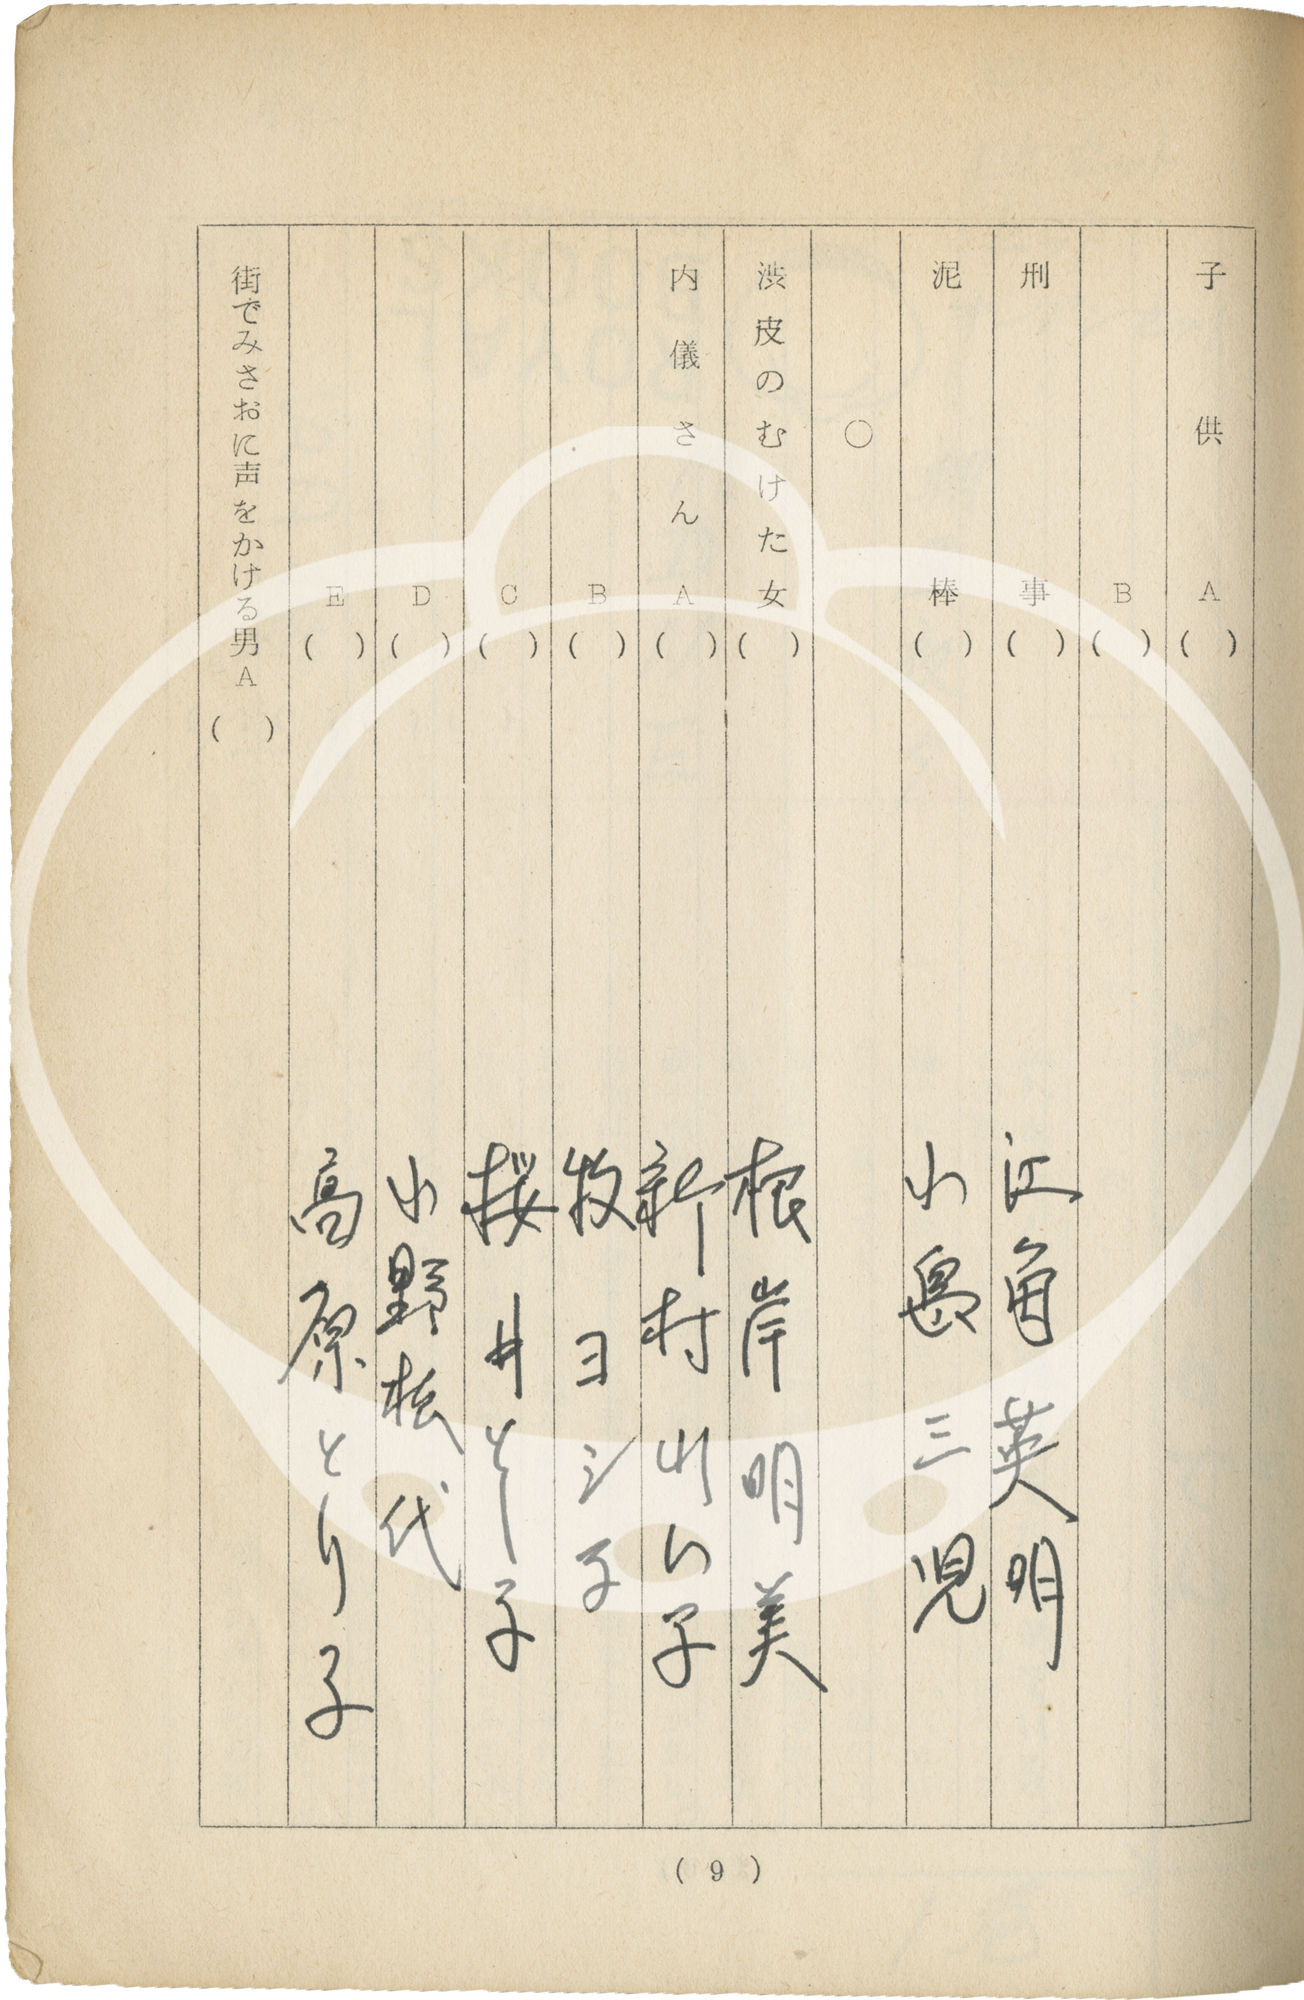 子供A( )
B( )
刑事( ) 江角英明
泥棒( ) 小島三児
○
渋皮のむけた女( ) 根岸明美
内儀さんA( ) 新村礼子
B( ) 牧ヨシ子
C( ) 桜井とし子
D( ) 小野松代
E( ) 高原とり子
街でみさおに声をかける男A( )
(9)